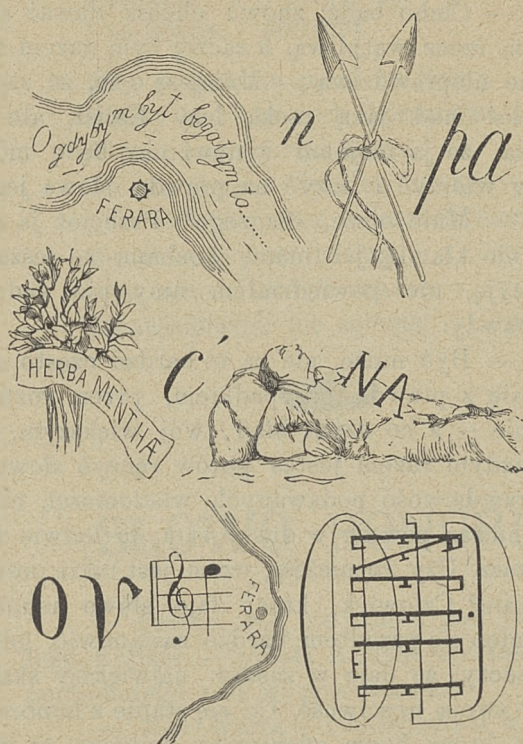 O gdybym był bogatym to.......
n
pa
FERARA
HERBA MENTHÆ
Ć
NA
OV
FERARA